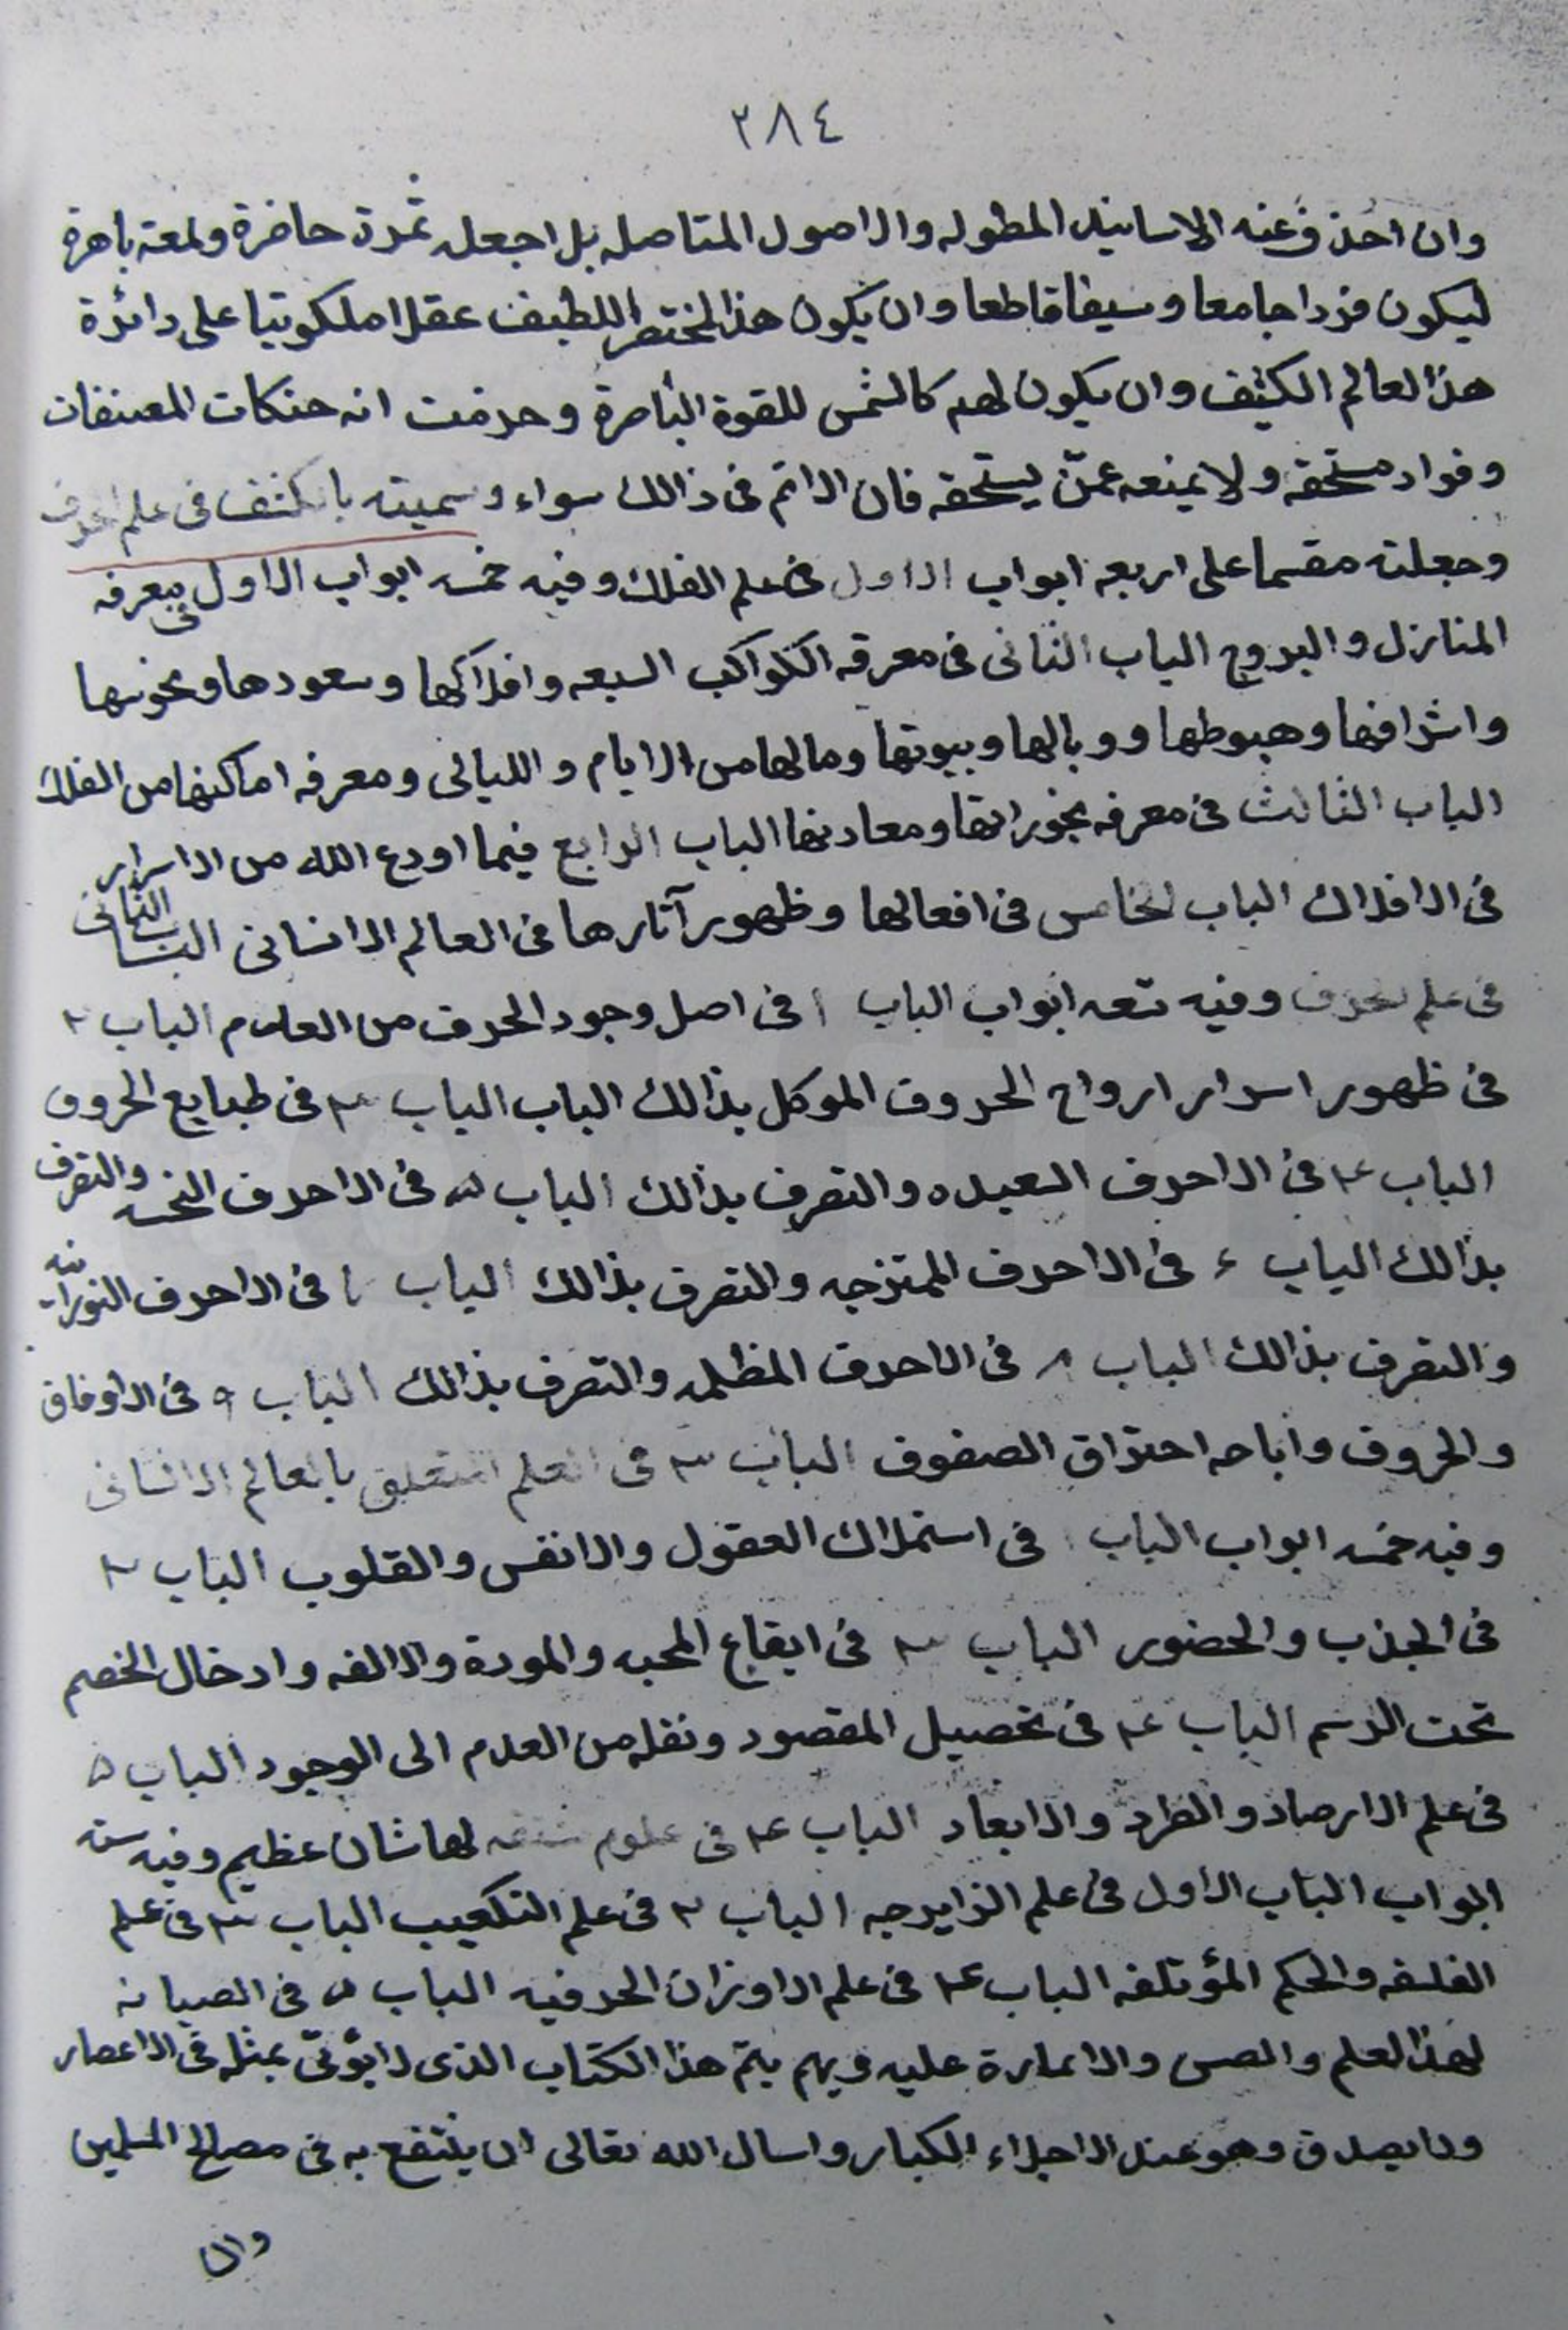 ٢٨٤
وان احذف عنه الاسانيد المطوله والاصول المتاصله بل اجعله ثمرة حاضرة ولمعة باهرة
ليكون فردا جامعا وسيفا قاطعا وان يكون هذا المختصر اللطيف عقلا ملكوتيا على دائرة
هذا العالم الكثيف وان يكون لهم كالشمس للقوة الباصرة و انه المصنفات
و مستحقه ولا يمنعه عمّن يستحقه فان الاثم فى ذالك سواء وسميته بالكشف فى علم الحرف
وجعلته مقسما على اربعه ابواب الاول فى علم الفلك وفيه خمسه ابواب الاول فى معرفه
المنازل والبروج الباب الثانى فى معرفه الكواكب السبعه وافلاكها وسعودها ونحوسها
واشرافها وهبوطها ووبالها وبيوتها ومالها من الايام والليالى ومعرفه اماكنها من الفلك
الباب الثالث فى معرفه بخوراتها ومعادنها الباب الرابع فيما اودع الله من الاسرار
فى الافلاك الباب الخامس فى افعالها وظهور آثارها فى العالم الانسانى الباب الثانى
فى علم الحرف وفيه تسعه ابواب الباب ١ فى اصل وجود الحرف من العدم الباب ٢
فى ظهور اسرار ارواح الحروف الموكل بذالك الباب الباب ٣ فى طبايع الحروف
الباب ٤ فى الاحرف السعيده والتصرف بذالك الباب ٥ فى الاحرف النحسه والتصرف
بذالك الباب ٦ فى الاحرف الممتزجه والتصرف بذالك الباب ٧ فى الاحرف النورانيه
والتصرف بذالك الباب ٨ فى الاحرف المظلمه والتصرف بذالك الباب ٩ فى الاوفاق
والحروف واباحه احتراق الصفوف الباب ٣ فى العلم المتعلق بالعالم الانسانى
وفيه خمسه ابواب الباب ١ فى استملاك العقول والانفس والقلوب الباب ٢
فى الجذب والحضور الباب ٣ فى ايقاع المحبه والمودة والالفه وادخال الخصم
تحت الرسم الباب ٤ فى تحصيل المقصود ونقله من العدم الى الوجود الباب ٥
فى علم الارصاد والطرد والابعاد الباب ٤ فى علوم لها شان عظيم وفيه سته
ابواب الباب الاول فى علم الزايرجه الباب ٢ فى علم التكعيب الباب ٣ فى علم
الفلسفه والحكم المؤتلفه الباب ٤ فى علم الاوزان الحرفيه الباب ٥ فى الصيانه
لهذا العلم والاماره عليه وبهم يتم هذا الكتاب الذى لا يؤتى بمثله فى الاعصار
ولا يصدق وهو عند الاجلاء الكبار واسال الله تعالى ان ينتفع به فى مصالح المسلمين
وان